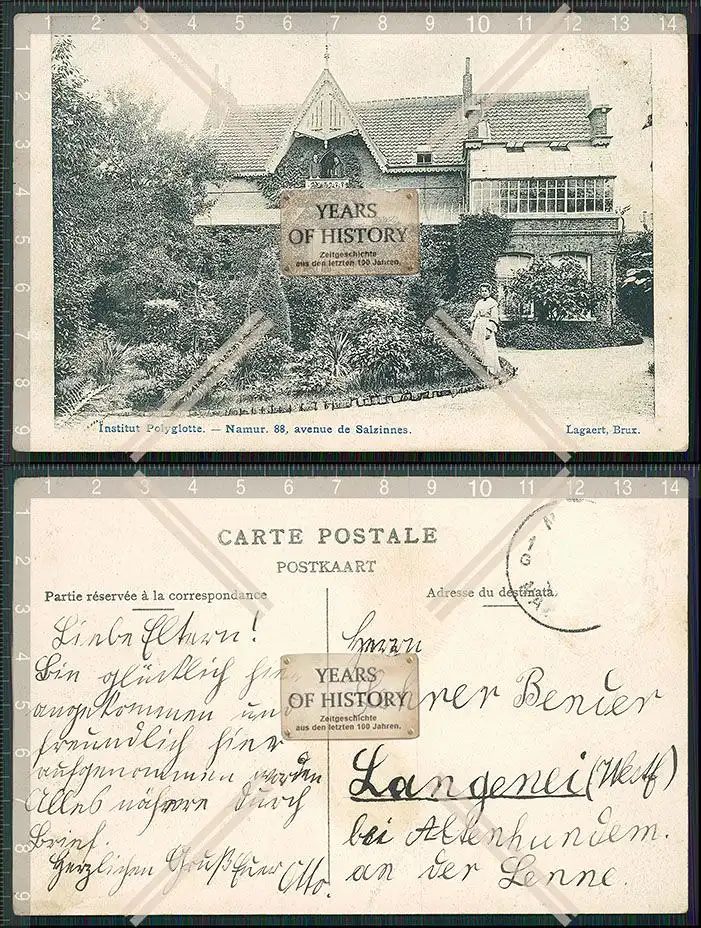 1 2 3 4 5 6 7 8 9 10 11 12 13 14
2
3
4
5
6
7
8
9
YEARS
OF HISTORY
Zeitgeschichte
aus den letzten 100 Jahren.
Institut Polyglotte. — Namur. 88, avenue de Salzinnes.
Lagaert, Brux.
1 2 3 4 5 6 7 8 9 10 11 12 13 14
CARTE POSTALE
POSTKAART
Partie réservée à la correspondance
Adresse du destinata.
Liebe Eltern!
Bin glücklich hier
angekommen und
freundlich hier
aufgenommen worden
Alles nähere durch
Brief.
Herzlichen Gruß Euer Otto.
YEARS
OF HISTORY
Zeitgeschichte
aus den letzten 100 Jahren.
Herrn
Lehrer Bender
Langenei (Westf)
bei Altenhundem.
an der Lenne.